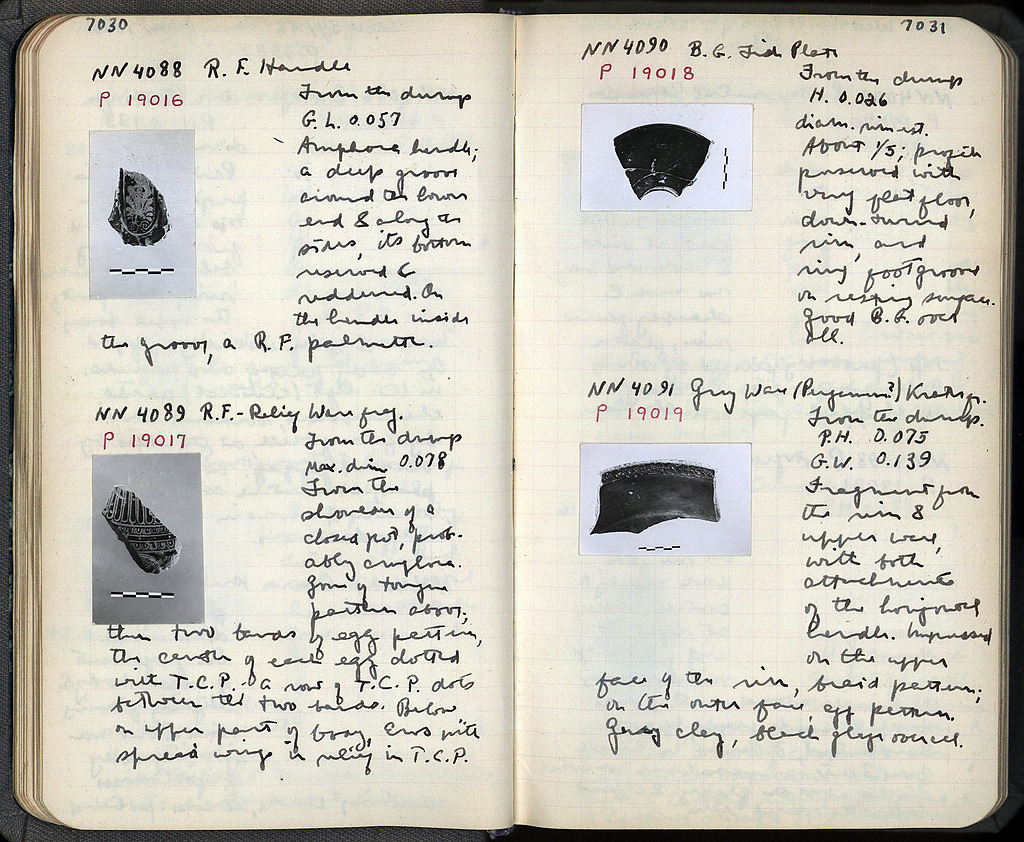 7030
NN 4088 R. F. Handle
P 19016
From the dump
G. L. 0.057
Amphora handle;
a deep groove
around the lower
end & along the
sides, its bottom
reserved &
reddened. On
the handle inside
the groove, a R. F. palmette.
NN 4089 R.F.-Relief Ware frag.
P 19017
From the dump
Max. dim 0.078
From the
shoulder of a
closed pot, prob-
ably amphora.
Zone of tongue
pattern above;
then two bands of egg pattern,
the center of each egg dotted
with T.C.P. A row of T.C.P. dots
between the two bands. Below
on upper part of body, Eros with
spread wings in relief in T.C.P.
7031
NN 4090 B. G. Fish Plate
P 19018
From the dump
H. 0.026
diam. rim est.
About 1/5; profile
preserved with
very flat floor,
down-turned
rim, and
ring foot groove
on resting surface.
Good B. G. over
all.
NN 4091 Grey Ware (Pergamene?) Krater fr.
P 19019
From the dump.
P.H. 0.075
G.W. 0.139
Fragment from
the rim &
upper wall,
with both
attachments
of the horizontal
handle. Impressed
on the upper
face of the rim, braid pattern;
on the outer face, egg pattern.
Gray clay, black glaze overall.